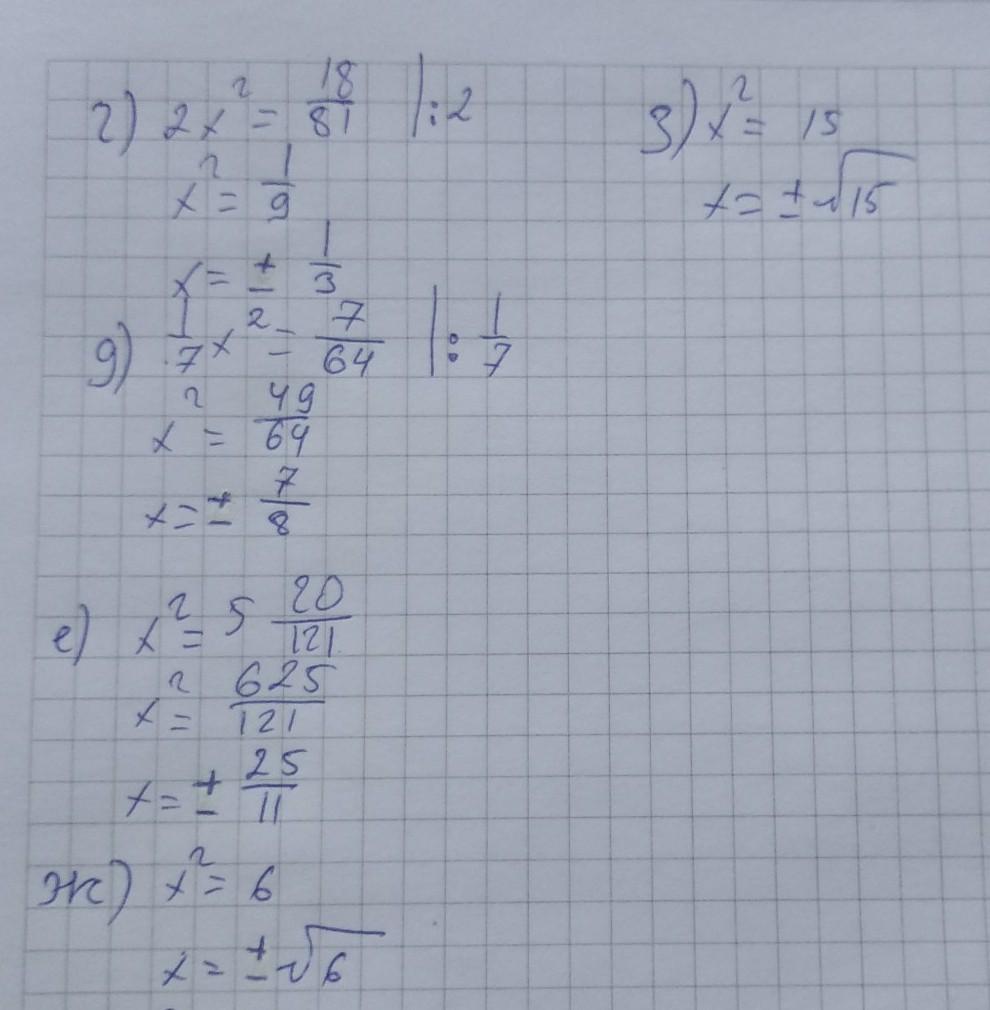 г) 2x² = 18/81 |:2
x² = 1/9
x = ± 1/3
д) 1/7 x² = 7/64 |: 1/7
x² = 49/64
x = ± 7/8
е) x² = 5 20/121
x² = 625/121
x = ± 25/11
ж) x² = 6
x = ± √6
з) x² = 15
x = ± √15